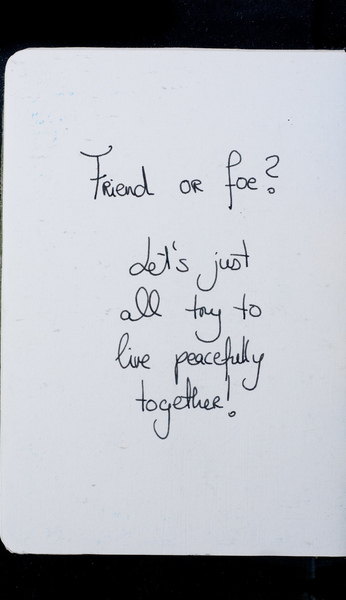 Friend or foe?
Let's just
all try to
live peacefully
together!